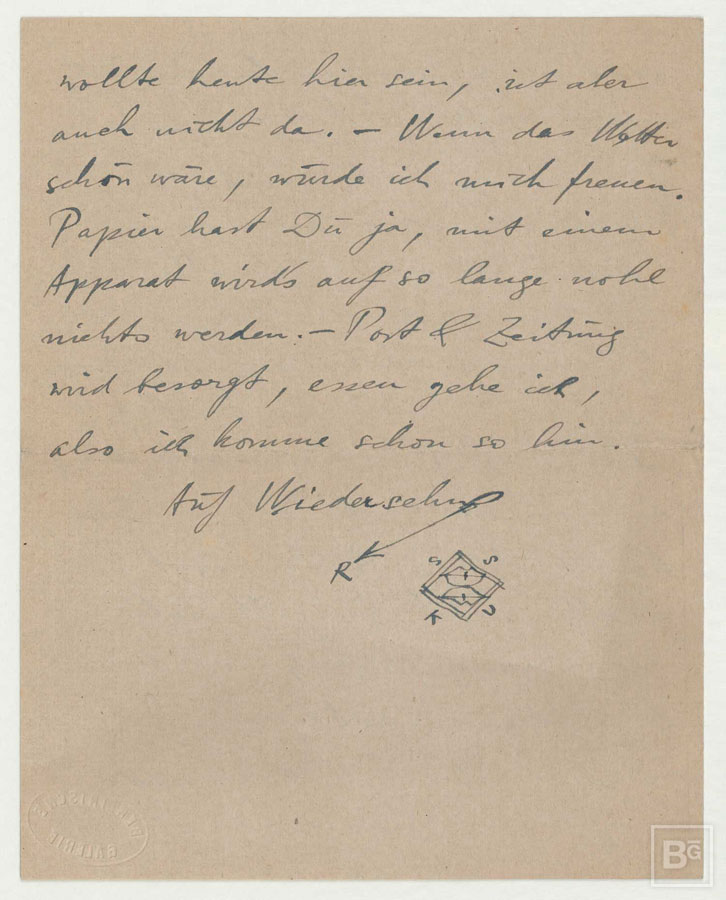 wollte heute hier sein, ist aber
auch nicht da. – Wenn das Wetter
schön wäre, würde ich mich freuen.
Papier hast Du ja, mit einem
Apparat wird's auf so lange wohl
nichts werden. – Post & Zeitung
wird besorgt, essen gehe ich,
also ich komme schon so hin.
Auf Wiedersehn
R
S S
K U
BERLINISCHE
GALERIE
BG